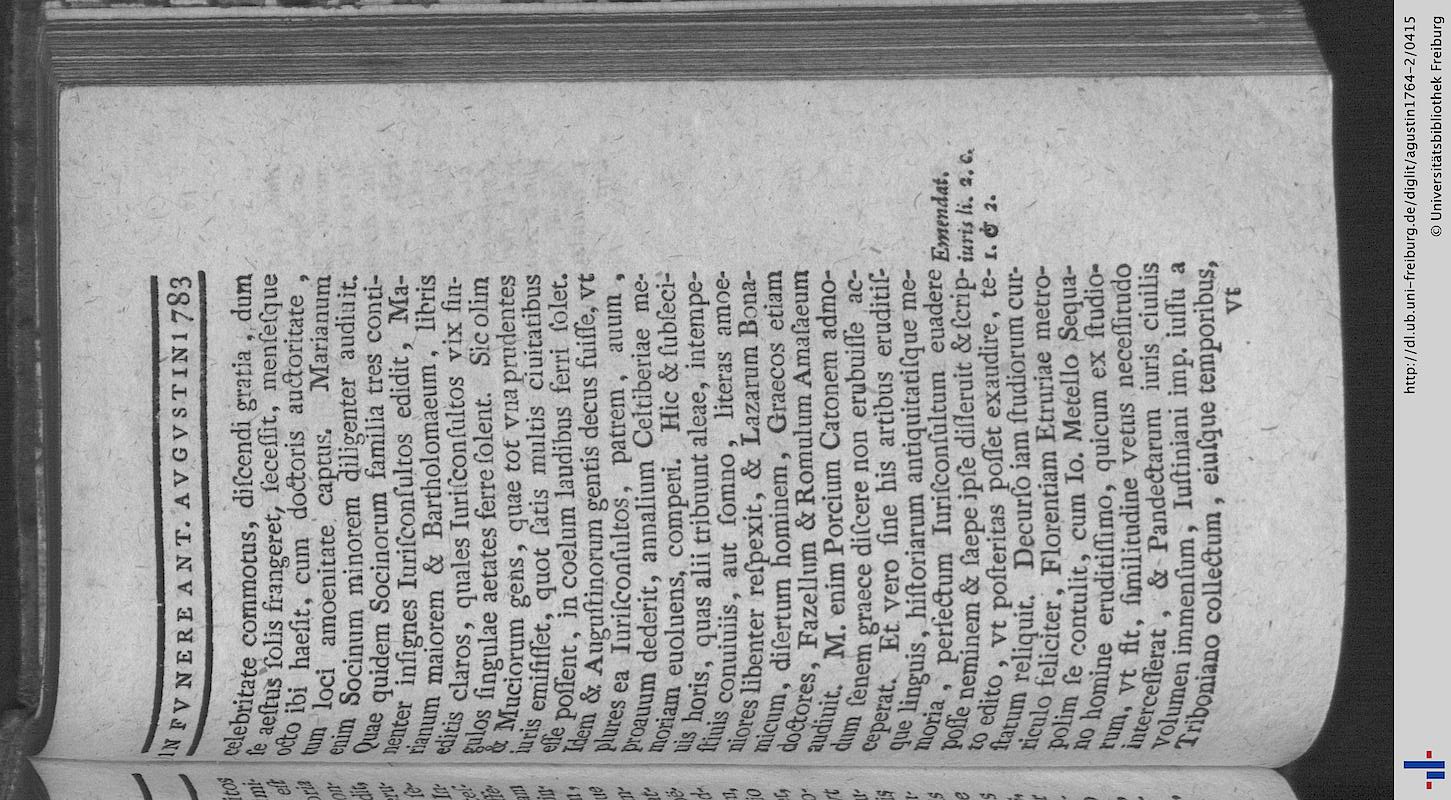 IN FVNERE ANT. AVGVSTINI 783
celebritate commotus, diſcendi gratia, dum
ſe aeſtus ſolis frangeret, ſeceſſit, menſeſque
octo ibi haeſit, cum doctoris auctoritate,
tum loci amoenitate captus. Marianum
enim Socinum minorem diligenter audiuit.
Quae quidem Socinorum familia tres conti-
nenter inſignes Iuriſconſultos edidit, Ma-
rianum maiorem & Bartholomaeum, libris
editis claros, quales Iuriſconſultos vix ſin-
gulos ſingulae aetates ferre ſolent. Sic olim
& Muciorum gens, quae tot vna prudentes
iuris emiſiſſet, quot ſatis multis ciuitatibus
eſſe poſſent, in coelum laudibus ferri ſolet.
Idem & Auguſtinorum gentis decus fuiſſe, vt
plures ea Iuriſconſultos, patrem, auum,
proauum dederit, annalium Celtiberiae me-
moriam euoluens, comperi. Hic & ſubſeci-
uis horis, quas alii tribuunt aleae, intempe-
ſtiuis conuiuiis, aut ſomno, literas amoe-
niores libenter reſpexit, & Lazarum Bona-
micum, diſertum hominem, Graecos etiam
doctores, Fazellum & Romulum Amaſaeum
audiuit. M. enim Porcium Catonem admo-
dum ſenem graece diſcere non erubuiſſe ac-
ceperat. Et vero ſine his artibus eruditiſ-
que linguis, hiſtoriarum antiquitatiſque me-
moria, perfectum Iuriſconſultum euadere
poſſe neminem & ſaepe ipſe diſſeruit & ſcrip-
to edito, vt poſteritas poſſet exaudire, te-
ſtatum reliquit. Decurſo iam ſtudiorum cur-
riculo feliciter, Florentiam Etruriae metro-
polim ſe contulit, cum Io. Metello Sequa-
no homine eruditiſſimo, quicum ex ſtudio-
rum, vt fit, ſimilitudine vetus neceſſitudo
interceſſerat, & Pandectarum iuris ciuilis
volumen immenſum, Iuſtiniani imp. iuſſu a
Triboniano collectum, eiuſque temporibus,
vt
Emendat.
iuris li. 2. c.
1. & 2.
http://dl.ub.uni-freiburg.de/diglit/agustin1764-2/0415
© Universitätsbibliothek Freiburg